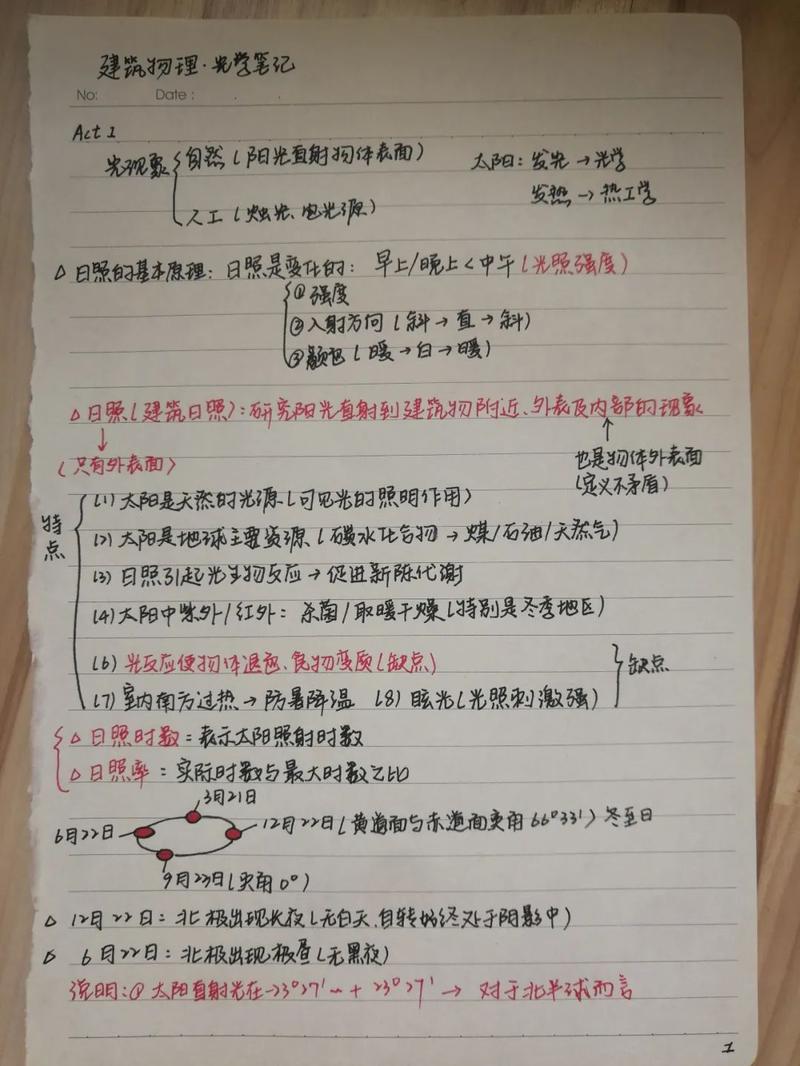 建筑物理·光学笔记
No: Date:
Act 1
光现象 自然(阳光直射物体表面) 太阳:发光→光学
发热→热工学
人工(烛光、电光源)
△日照的基本原理:日照是变化的: 早上/晚上<中午(光照强度)
①强度
②入射方向(斜→直→斜)
③颜色(暖→白→暖)
△日照(建筑日照):研究阳光直射到建筑物附近、外表及内部的现象
↓ ↑
(只有外表面) 也是物体外表面
(定义不矛盾)
特点
(1)太阳是天然的光源(可见光的照明作用)
(2)太阳是地球主要资源(碳水化合物→煤/石油/天然气)
(3)日照引起光生物反应→促进新陈代谢
(4)太阳中紫外/红外: 杀菌/取暖干燥(特别是冬季地区)
(6)光反应使物体退色、食物变质(缺点)
缺点
(7)室内南方过热→防暑降温 (8)眩光(光照刺激强)
△日照时数:表示太阳照射时数
△日照率:实际时数与最大时数之比
3月21日
6月22日 12月22日(黄道面与赤道面夹角66°33′)冬至日
9月23日(夹角0°)
△ 12月22日:北极出现长夜(无白天,自转始终处于阴影中)
△ 6月22日:北极出现极昼(无黑夜)
说明:①太阳直射光在-23°27′~+23°27′→对于北半球而言
1